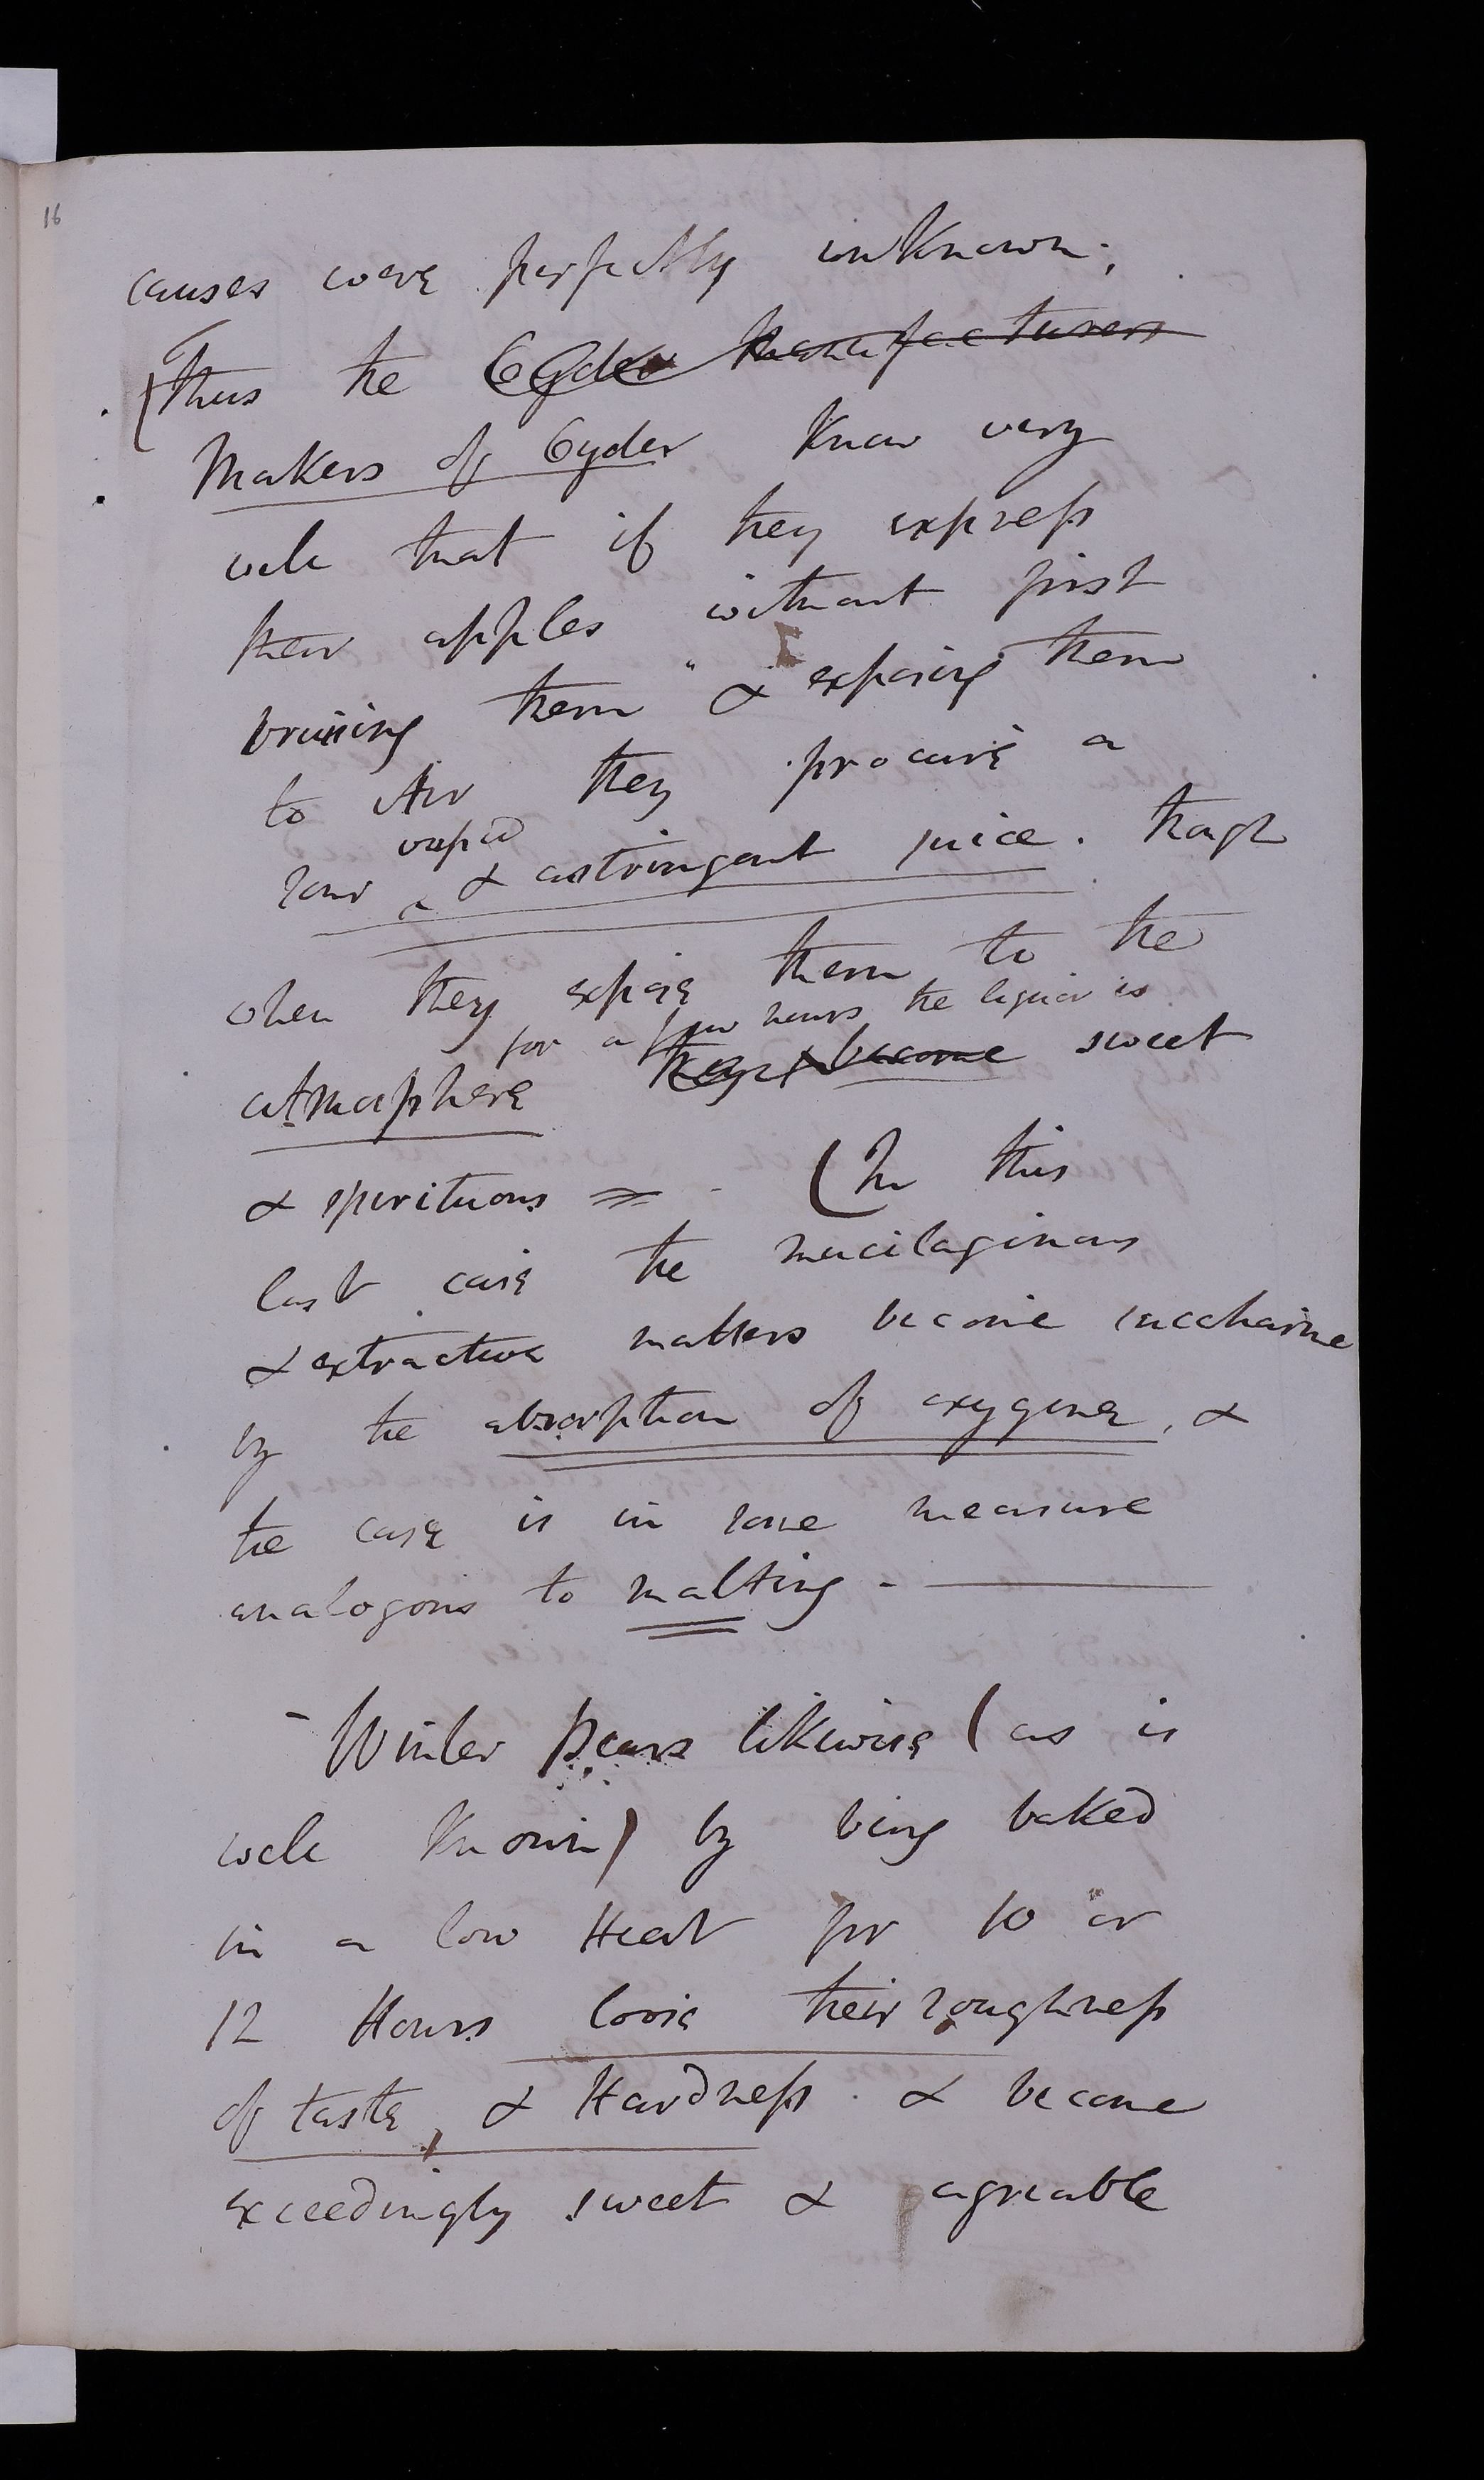 16
causes were perfectly unknown;
(Thus the Cyder Manufacturers
Makers of Cyder know very
well that if they express
their apples without first
bruising them & exposing them
to Air they procure a
vapid
sour ^ & astringent juice. though
when they expose them to the
for a few hours the liquor is
atmosphere they become sweet
& spirituous = - (In this
last case the mucilaginous
& extractive matters become saccharine
by the absorption of oxygene, &
the case is in some measure
analogous to malting. -
- Winter Pears likewise (as is
well known) by being baked
in a low Heat for 10 or
12 Hours loose their roughness
of taste, & Hardness. & become
exceedingly sweet & agreable